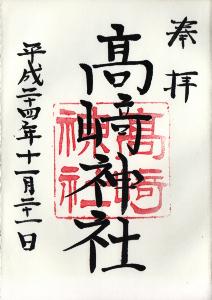 奉拝
高﨑神社
髙﨑
神社
平成二十四年十一月二十一日